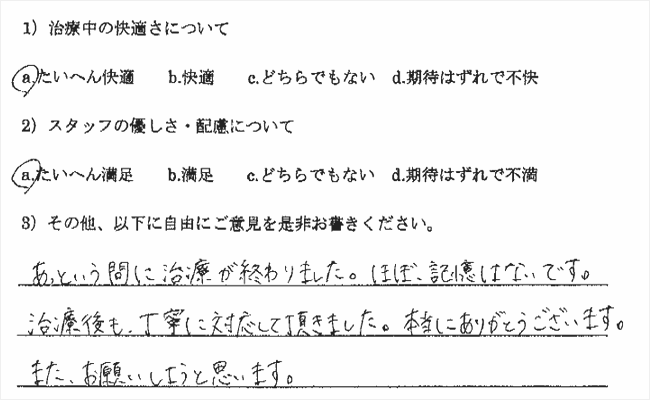 1）治療中の快適さについて
a.たいへん快適　b.快適　c.どちらでもない　d.期待はずれで不快
2）スタッフの優しさ・配慮について
a.たいへん満足　b.満足　c.どちらでもない　d.期待はずれで不満
3）その他、以下に自由にご意見を是非お書きください。
あっという間に治療が終わりました。ほぼ、記憶はないです。
治療後も、丁寧に対応して頂きました。本当にありがとうございます。
また、お願いしようと思います。